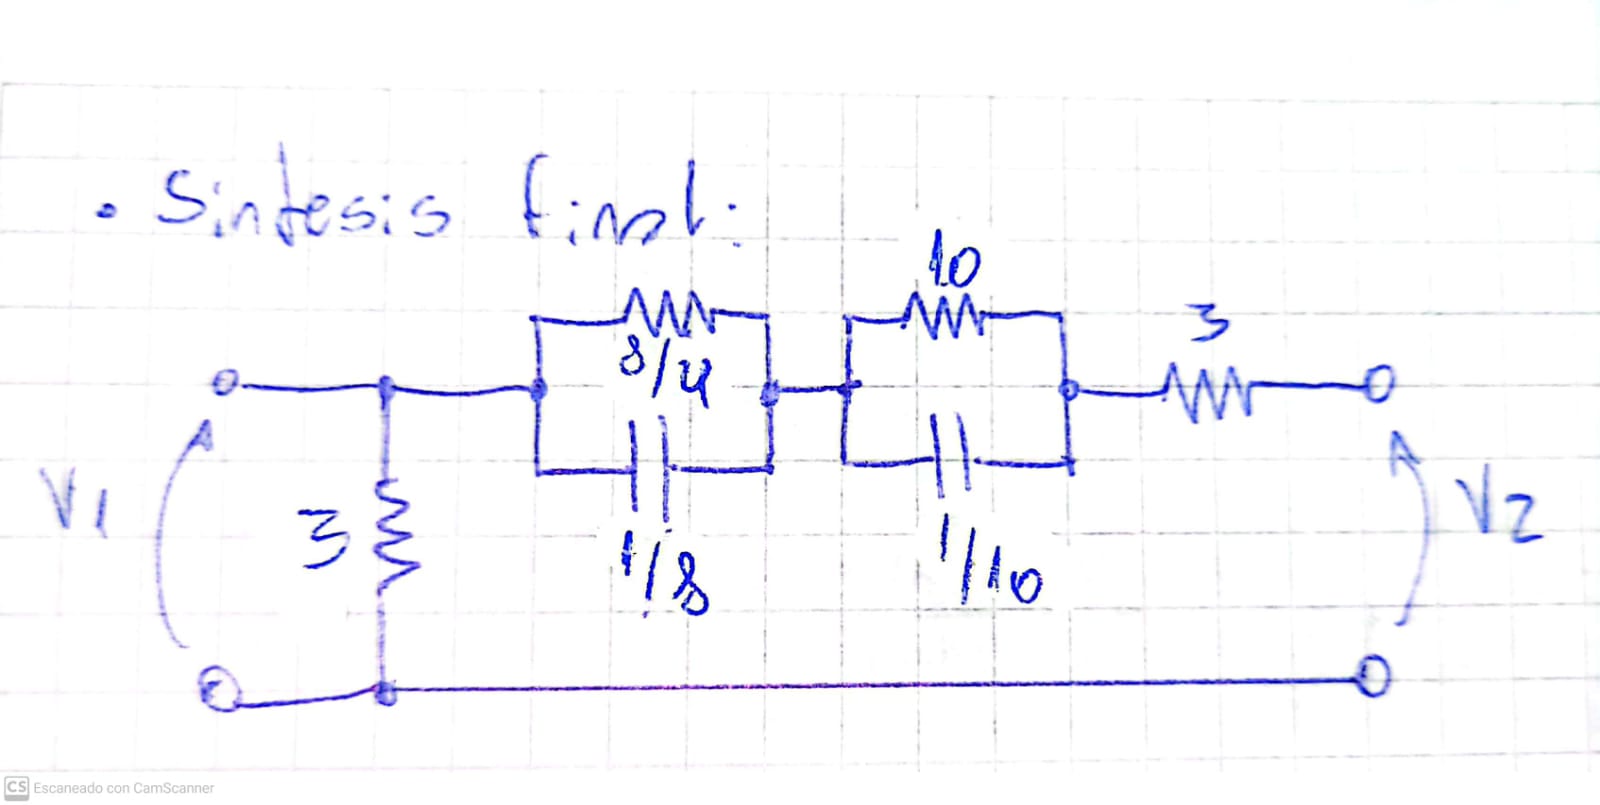 • Síntesis final:
10
3
8/4
V1
3
V2
1/8
1/10
CS Escaneado con CamScanner